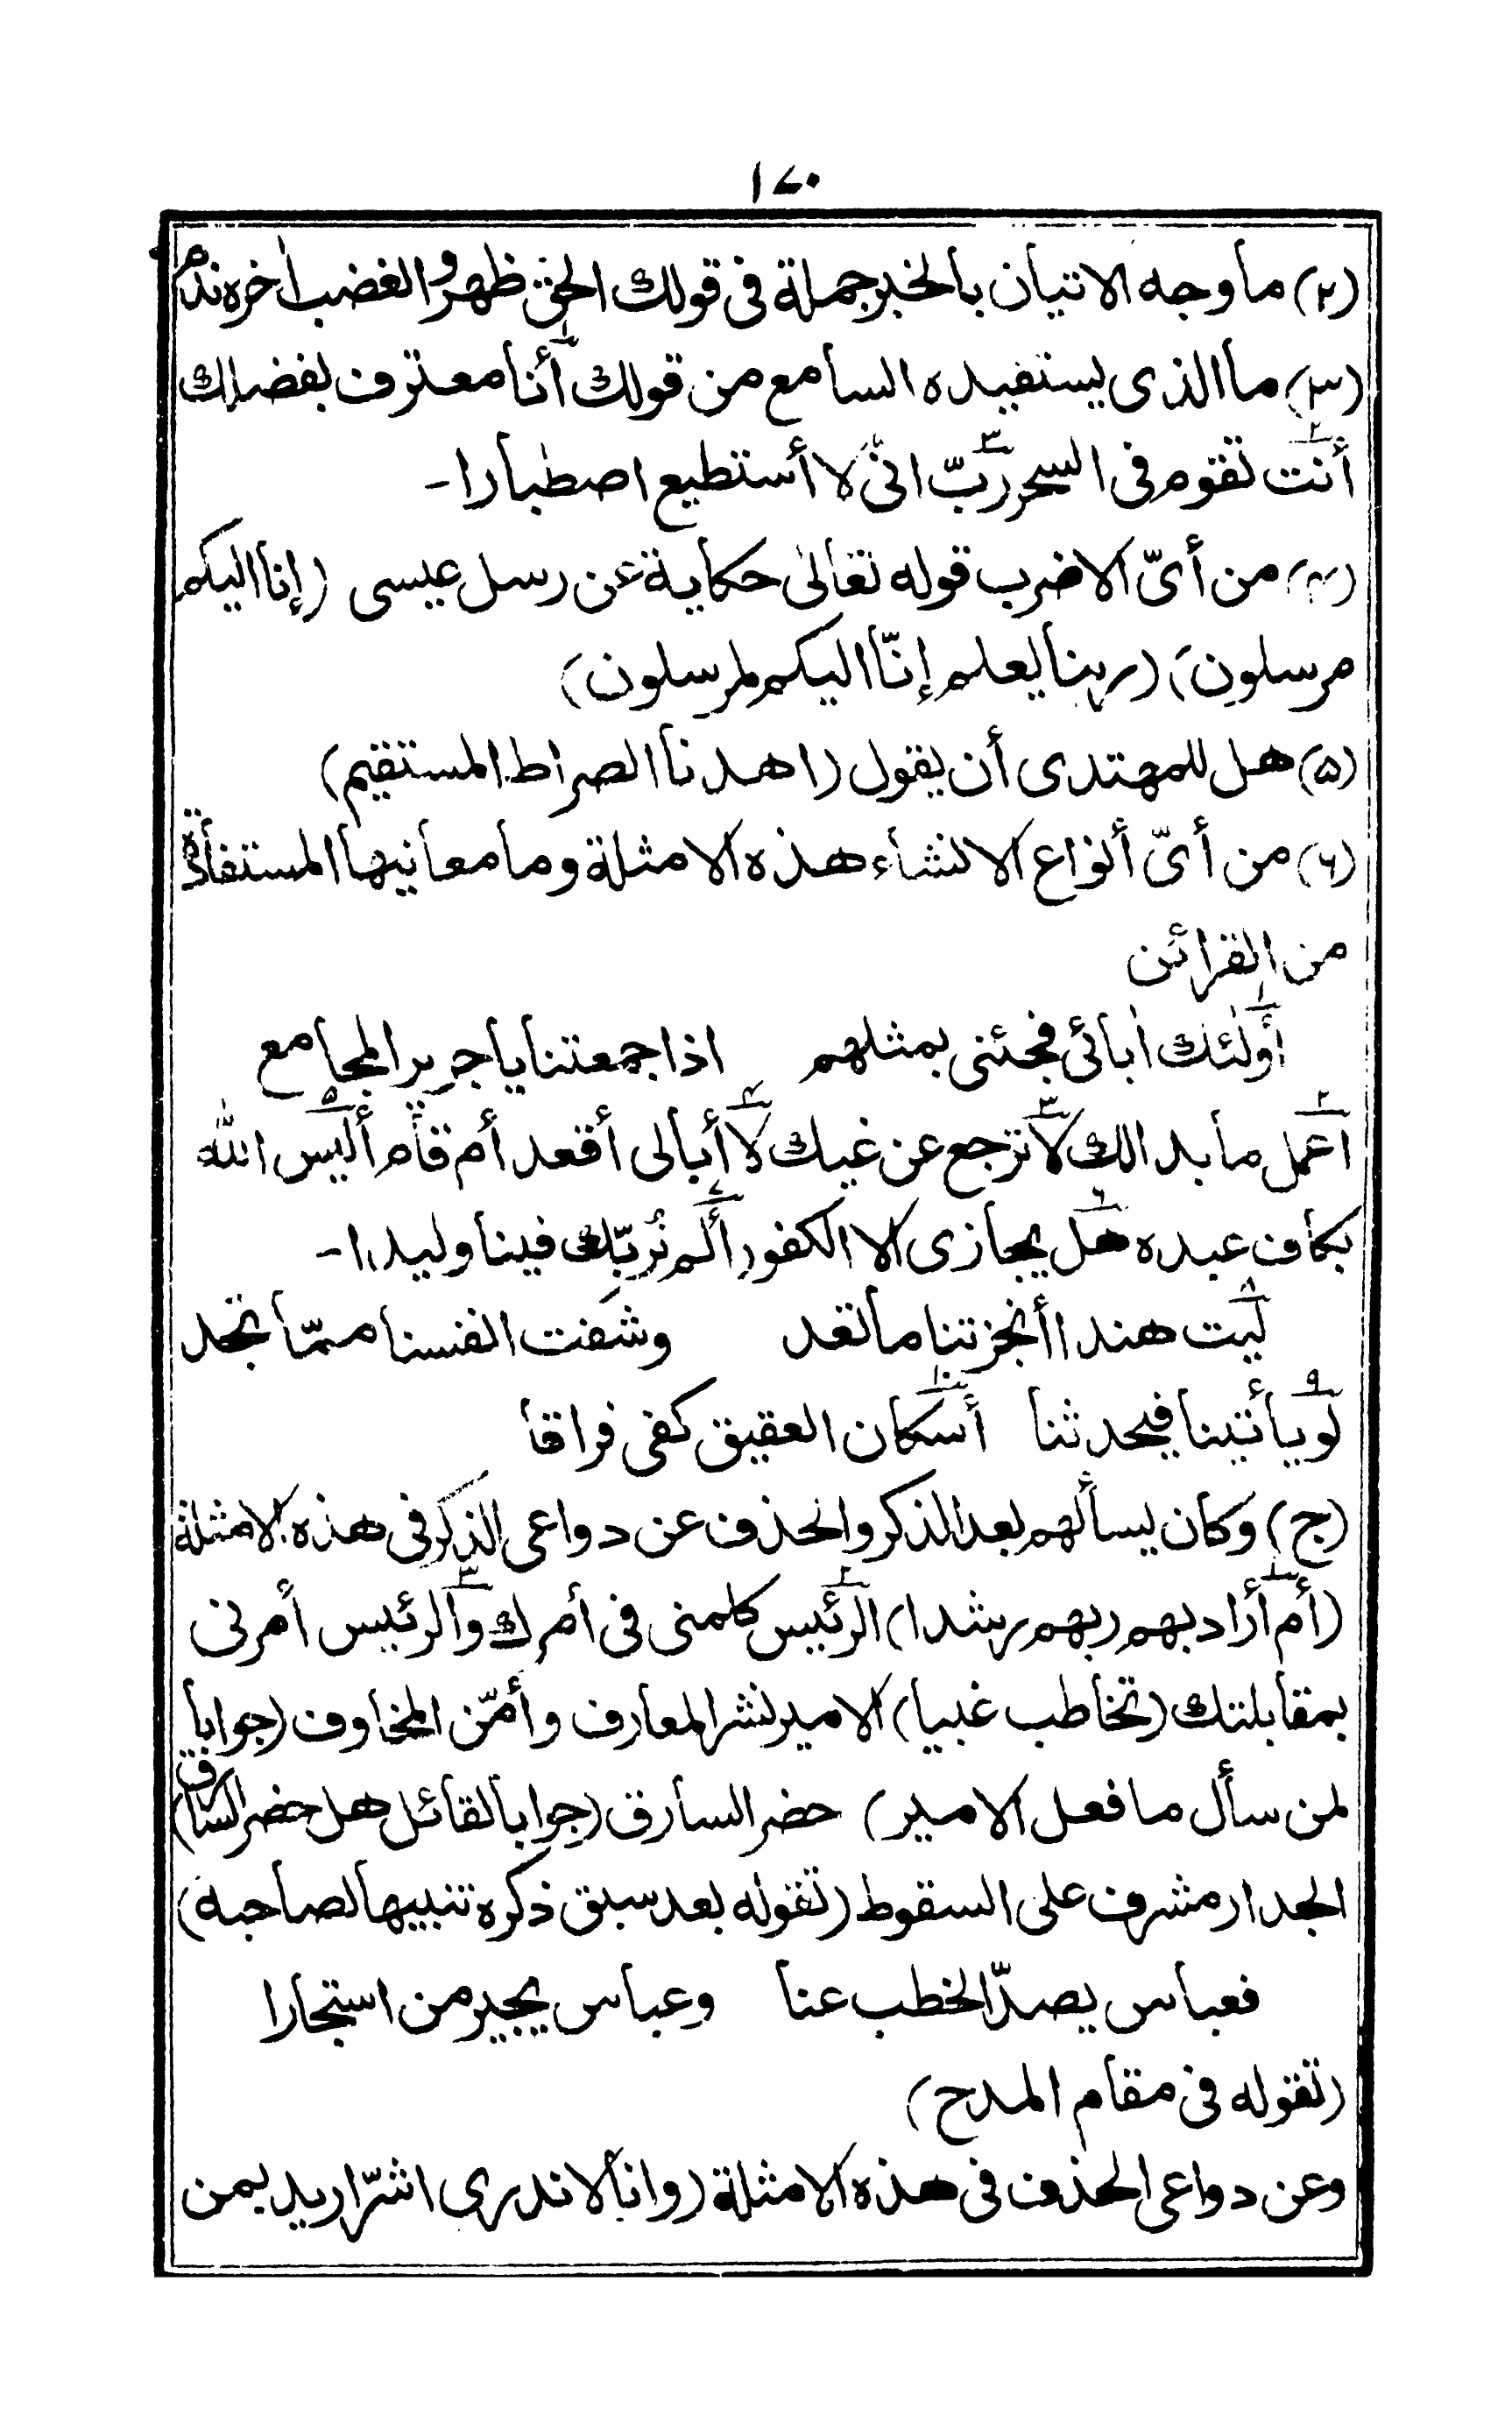 ١٧٠
(٢) ما وجه الاتيان بالخبر جملة فى قولك الحق ظهر والغضب اٰخره ندم
(٣) ما الذى يستفيده السامع من قولك أنا معترف بفضلك
أنت تقوم فى السحر ربّ انى لا أستطيع اصطبارا-
(٤) من أىّ الاضرب قوله تعالىٰ حكاية عن رسل عيسى (إنا اليكم
مرسلون) (ربنا يعلم إنّا اليكم لمرسلون)
(۵) هل للمهتدى أن يقول (اهدنا الصراط المستقيم)
(٦) من أىّ أنواع الانشاء هذه الامثلة وما معانيها المستفادة
من القرائن
أولٰئك اٰبائى فجئنى بمثلهم اذا جمعتنا يا جرير المجامع
اعمل ما بدا لك لا ترجع عن غيك لا أبالى أقعد أم قام أليس الله
بكاف عبده هل يجازى الا الكفور ألم نُربّك فينا وليدا-
ليت هندا أنجزتنا ما تعد وشفت انفسنا ممّا تجد
لو يأتينا فيحدثنا أسكان العقيق كفى فراقا
(ج) وكان يسألهم بعد الذكر والحذف عن دواعى الذكر فى هذه الامثلة
(أم أراد بهم ربهم رشدا) الرئيس كلمنى فى أمرك والرئيس أمرنى
بمقابلتك (تخاطب غبيا) الامير نشر المعارف وأمّن المخاوف (جوابا
لمن سأل ما فعل الامير) حضر السارق (جوابا لقائل هل حضر السارق)
الجدار مشرف على السقوط (تقوله بعد سبق ذكره تنبيها لصاحبه)
فعباس يصدّ الخطب عنا وعباس يجير من استجارا
(تقوله فى مقام المدح)
وعن دواعى الحذف فى هذه الامثلة (وانا لا ندرى اشرّ اريد بمن